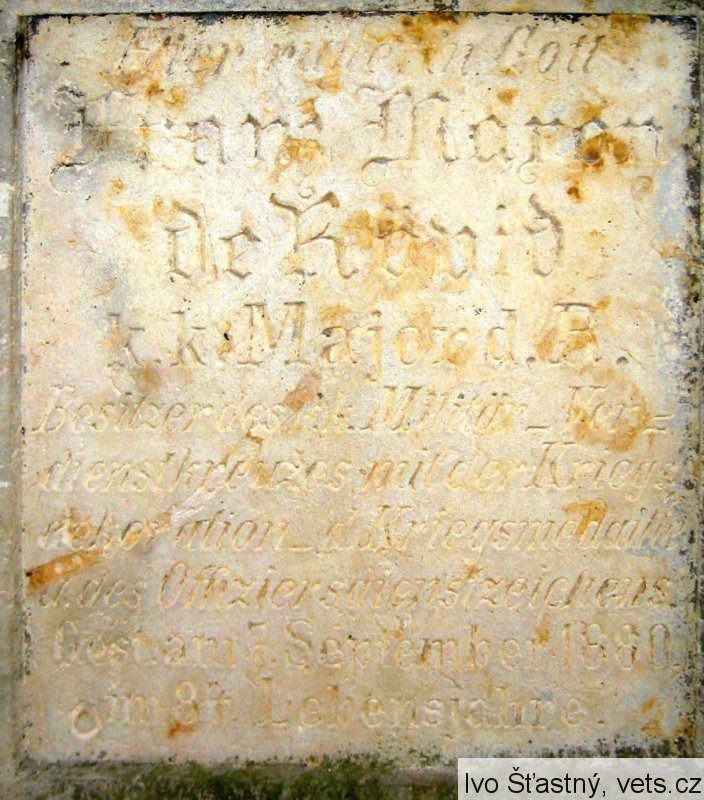 Hier ruht in Gott
Franz Maren
de Kövid
k.k. Major d. A.
Besitzer des k.k. Militär-Ver-
dienstkreuzes mit der Kriegs
dekoration, d. Kriegsmedaille
u. des Offiziersdienstzeichens.
Gest. am 7. September 1880.
im Lebensjahre.
Ivo Šťastný, vets.cz